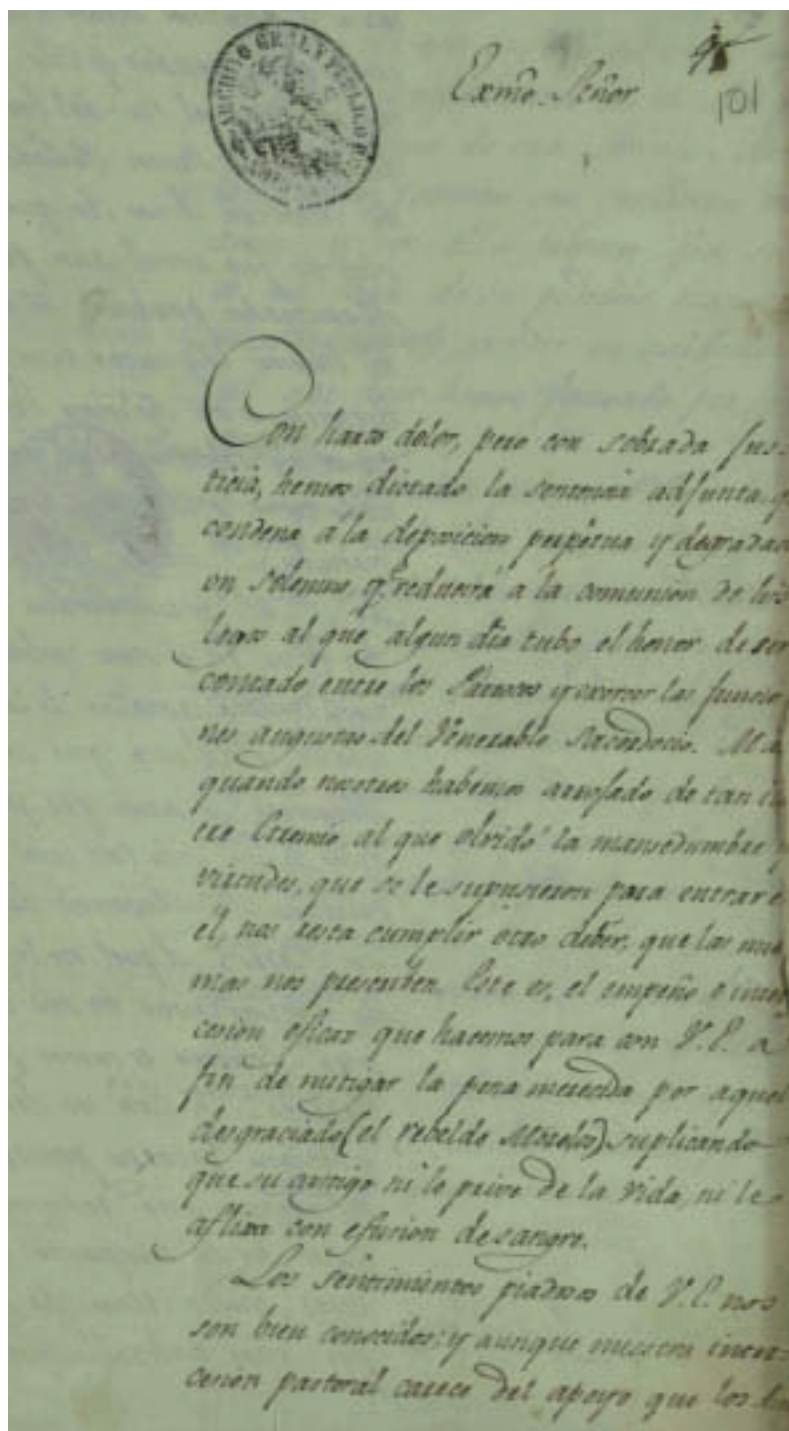 ARCHIVO GRAL Y PUBLICO
Exmo. Señor
95
101
Con harto dolor, pero con sobrada jus-
ticia, hemos dictado la sentencia adjunta, q
condena á la deposicion perpetua y degradaci
on solemne, q.e reducirá á la comunion de los
legos al que algun dia tubo el honor de ser
contado entre los Párrocos y exercer las funcio
nes augustas del Venerable Sacerdocio. Ma
quando nosotros habemos arrojado de tan
tre Gremio al que olvidó la mansedumbre y
virtudes, que se le supusieron para entrar e
él, nos resta cumplir otro deber, que las mis
mas nos prescriben. Este es, el empeño é inter
cesion eficaz que hacemos para con V.E. a
fin de mitigar la pena merecida por aquel
desgraciado (el rebelde Morelos) suplicando
que su castigo ni le prive de la vida, ni le
aflixa con efusion de sangre.
Los sentimientos piadosos de V.E. nos
son bien conocidos; y aunque nuestra inter-
cesion pastoral carece del apoyo que los